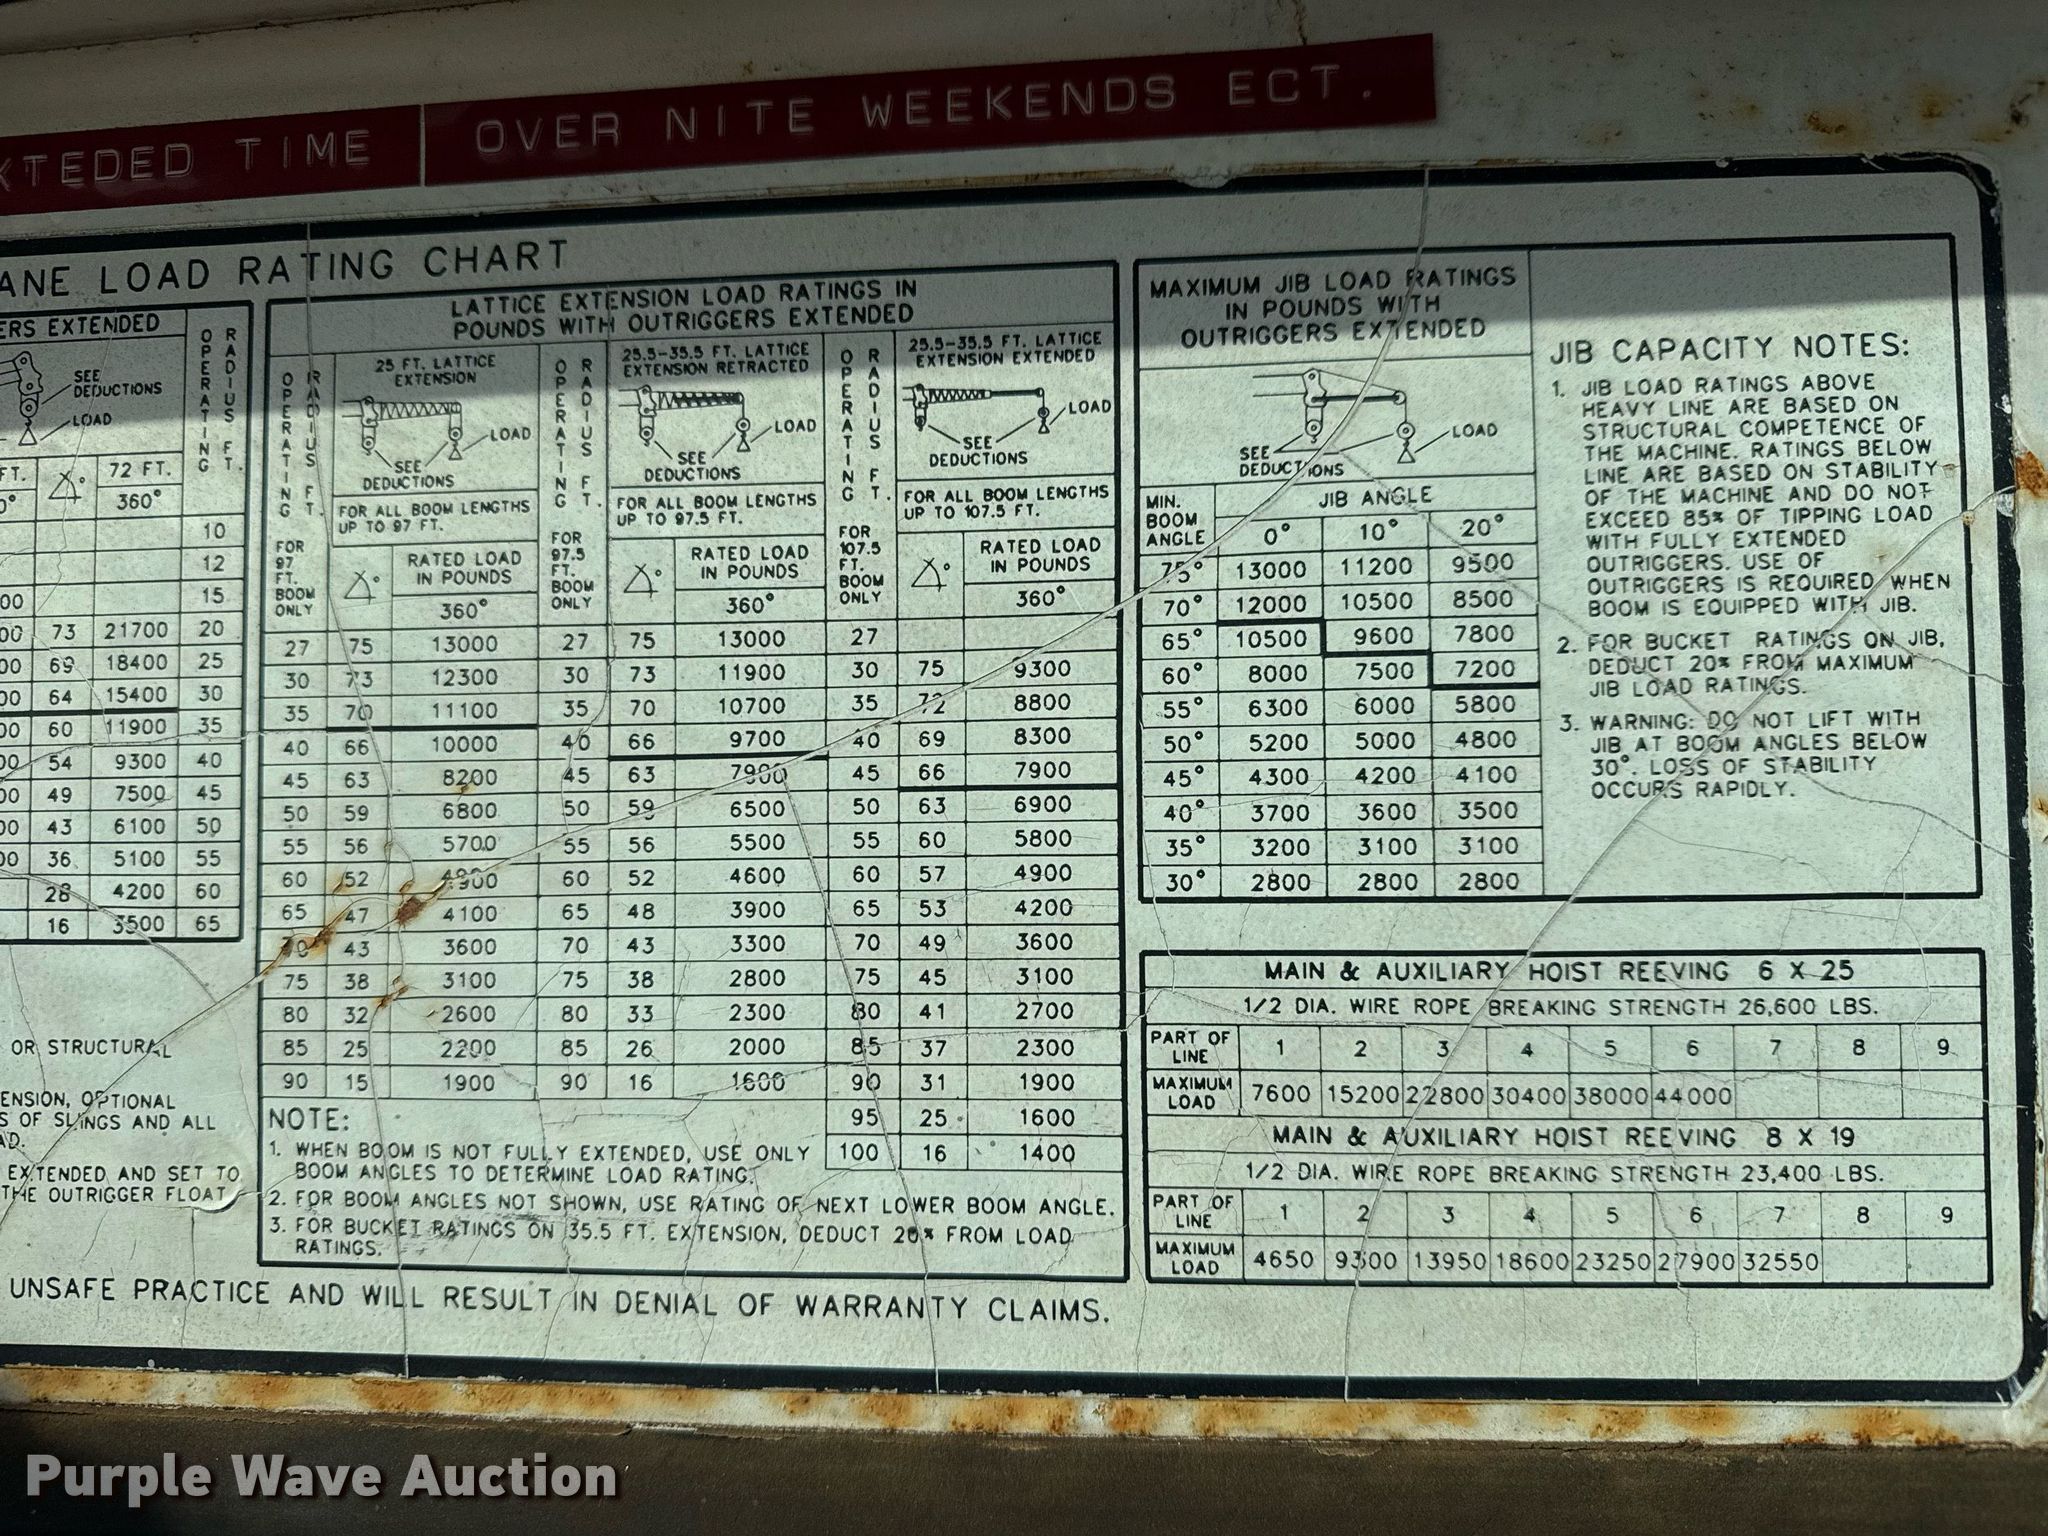 TED TIME OVER NITE WEEKENDS ECT.
ANE LOAD RATING CHART
ERS EXTENDED
SEE
DEDUCTIONS
LOAD
OPERATING RADIUS FT.
FT. 72 FT.
0° 360°
10
12
00 15
00 73 21700 20
00 69 18400 25
00 64 15400 30
00 60 11900 35
00 54 9300 40
00 49 7500 45
00 43 6100 50
00 36 5100 55
28 4200 60
16 3500 65
OR STRUCTURAL
ENSION, OPTIONAL
S OF SLINGS AND ALL
AD.
EXTENDED AND SET TO
THE OUTRIGGER FLOAT
LATTICE EXTENSION LOAD RATINGS IN
POUNDS WITH OUTRIGGERS EXTENDED
OPERATING RADIUS FT.
FOR
97
FT.
BOOM
ONLY
25 FT. LATTICE
EXTENSION
LOAD
SEE
DEDUCTIONS
FOR ALL BOOM LENGTHS
UP TO 97 FT.
RATED LOAD
IN POUNDS
360°
OPERATING RADIUS FT.
FOR
97.5
FT.
BOOM
ONLY
25.5-35.5 FT. LATTICE
EXTENSION RETRACTED
LOAD
SEE
DEDUCTIONS
FOR ALL BOOM LENGTHS
UP TO 97.5 FT.
RATED LOAD
IN POUNDS
360°
OPERATING RADIUS FT.
FOR
107.5
FT.
BOOM
ONLY
25.5-35.5 FT. LATTICE
EXTENSION EXTENDED
LOAD
SEE
DEDUCTIONS
FOR ALL BOOM LENGTHS
UP TO 107.5 FT.
RATED LOAD
IN POUNDS
360°
27 75 13000 27 75 13000 27
30 73 12300 30 73 11900 30 75 9300
35 70 11100 35 70 10700 35 72 8800
40 66 10000 40 66 9700 40 69 8300
45 63 8200 45 63 7900 45 66 7900
50 59 6800 50 59 6500 50 63 6900
55 56 5700 55 56 5500 55 60 5800
60 52 4900 60 52 4600 60 57 4900
65 47 4100 65 48 3900 65 53 4200
70 43 3600 70 43 3300 70 49 3600
75 38 3100 75 38 2800 75 45 3100
80 32 2600 80 33 2300 80 41 2700
85 25 2200 85 26 2000 85 37 2300
90 15 1900 90 16 1600 90 31 1900
95 25 1600
100 16 1400
NOTE:
1. WHEN BOOM IS NOT FULLY EXTENDED, USE ONLY
BOOM ANGLES TO DETERMINE LOAD RATING.
2. FOR BOOM ANGLES NOT SHOWN, USE RATING OF NEXT LOWER BOOM ANGLE.
3. FOR BUCKET RATINGS ON 35.5 FT. EXTENSION, DEDUCT 20% FROM LOAD
RATINGS.
UNSAFE PRACTICE AND WILL RESULT IN DENIAL OF WARRANTY CLAIMS.
MAXIMUM JIB LOAD RATINGS
IN POUNDS WITH
OUTRIGGERS EXTENDED
SEE
DEDUCTIONS
LOAD
MIN.
BOOM
ANGLE
JIB ANGLE
0° 10° 20°
75° 13000 11200 9500
70° 12000 10500 8500
65° 10500 9600 7800
60° 8000 7500 7200
55° 6300 6000 5800
50° 5200 5000 4800
45° 4300 4200 4100
40° 3700 3600 3500
35° 3200 3100 3100
30° 2800 2800 2800
JIB CAPACITY NOTES:
1. JIB LOAD RATINGS ABOVE
HEAVY LINE ARE BASED ON
STRUCTURAL COMPETENCE OF
THE MACHINE. RATINGS BELOW
LINE ARE BASED ON STABILITY
OF THE MACHINE AND DO NOT
EXCEED 85% OF TIPPING LOAD
WITH FULLY EXTENDED
OUTRIGGERS. USE OF
OUTRIGGERS IS REQUIRED WHEN
BOOM IS EQUIPPED WITH JIB.
2. FOR BUCKET RATINGS ON JIB,
DEDUCT 20% FROM MAXIMUM
JIB LOAD RATINGS.
3. WARNING: DO NOT LIFT WITH
JIB AT BOOM ANGLES BELOW
30°. LOSS OF STABILITY
OCCURS RAPIDLY.
MAIN & AUXILIARY HOIST REEVING 6 X 25
1/2 DIA. WIRE ROPE BREAKING STRENGTH 26,600 LBS.
PART OF
LINE
1 2 3 4 5 6 7 8 9
MAXIMUM
LOAD
7600 15200 22800 30400 38000 44000
MAIN & AUXILIARY HOIST REEVING 8 X 19
1/2 DIA. WIRE ROPE BREAKING STRENGTH 23,400 LBS.
PART OF
LINE
1 2 3 4 5 6 7 8 9
MAXIMUM
LOAD
4650 9300 13950 18600 23250 27900 32550
Purple Wave Auction